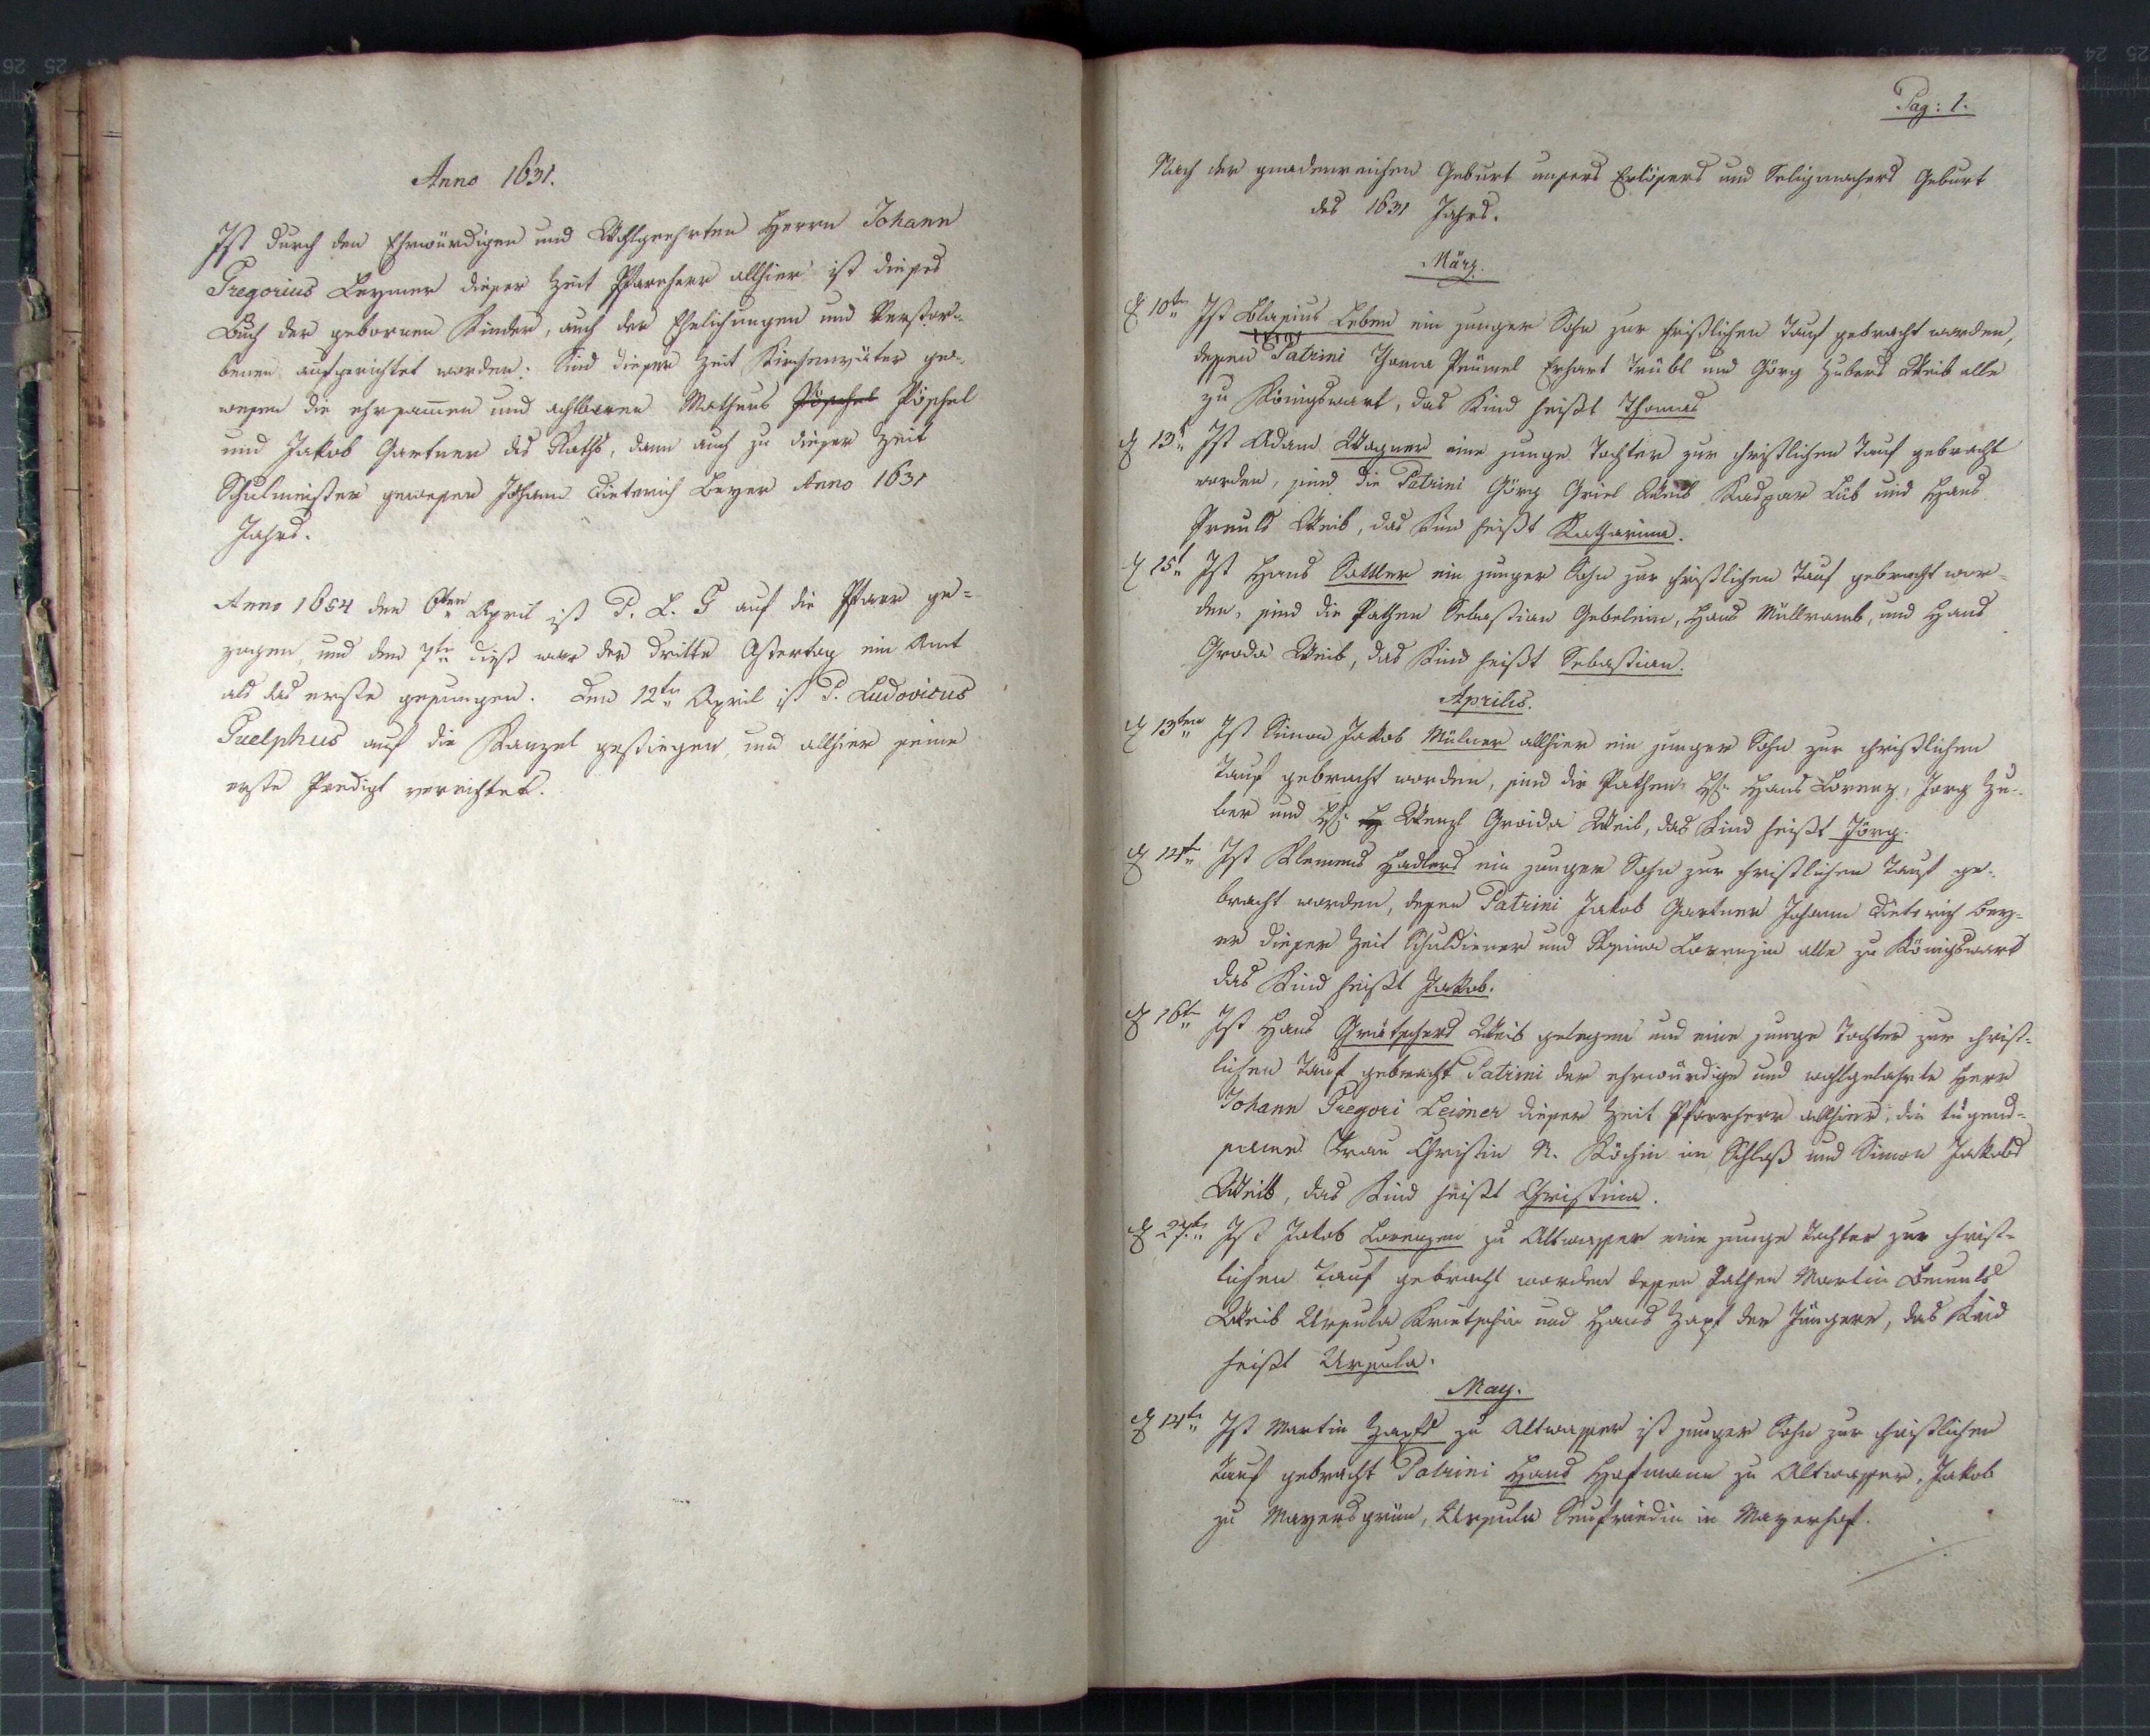 Anno 1631.
Ist durch den Ehrwürdigen und Wohlgeehrten Herrn Johann
Gregorius Leymer dieser Zeit Pfarrherr allhier ist dieses
Buch der gebornen Kinder, auch der Ehelichungen und Verstor-
benen aufgerichtet worden: Sind dieser Zeit Kirchenväter ge-
wesen die ehrsamen und achtbaren Matheus Pöschel Pöschel
und Jakob Gartner des Raths, dann auch zu dieser Zeit
Schulmeister gewesen Johann Dieterich Beyer Anno 1631
Jahrs.
Anno 1654 den 6ten April ist P. L. G auf die Pfarr ge-
zogen, und den 7te dieß war der dritte Ostertag ein Amt
als das erste gesungen. Den 12te April ist P. Ludovicus
Guelphus auf die Kanzel gestiegen, und allhier seine
erste Predigt verrichtet.
Pag: 1.
Nach der gnadenreichen Geburt unsers Erlösers und Seligmachers Geburt
des 1631 Jahrs.
März.
d 10te Ist Blasius Leben ein junger Sohn zur christlichen Tauf gebracht worden,
dessen Patrini Thoma Erhart Trübl und Görg Hubers Weib alle
zu Königswart, das Kind heißt Thomas
d 13t Ist Adam Wagner eine junge Tochter zur christlichen Tauf gebracht
worden, sind die Patrini Görg Weib Kaspar und Hans
Weib, das Kind heißt Katharina.
d 25t Ist Hans Sattler ein junger Sohn zur christlichen Tauf gebracht wor-
den, sind die Pathen Sebastian Gebelein, Hans und Hans
Grada Weib, das Kind heißt Sebastian.
Aprilis.
d 13ten Ist Simon Jakob Mülner allhier ein junger Sohn zur christlichen
Tauf gebracht worden, sind die Pathen H. Hans Lorenz, Jorg Hu-
ber und H. Wenzl Graida Weib, das Kind heißt Jörg.
d 14te Ist Klemens Hadlers ein junger Sohn zur christlichen Tauf ge-
bracht worden, dessen Patrini Jakob Gartner Johann Dieterich Bey-
er dieser Zeit Schuldiener und Lorenzin alle zu Königswart
das Kind heißt Jakob.
d 16te Ist Hans Grütschers Weib gelegen und eine junge Tochter zur christ-
lichen Tauf gebracht Patrini der ehrwürdige und wohlgelahrte Herr
Johann Gregori Leimer dieser Zeit Pfarrherr allhier, die tugend-
same Frau Christin N. Köchin im Schloß und Simon Jakobs
Weib, das Kind heißt Christina.
d 27te Ist Jakob Lorenzen zu Altwasser eine junge Tochter zur christ-
lichen Tauf gebracht worden dessen Pathen Martin
Weib Ursula und Hans Zapf der Jüngere, das Kind
heißt Ursula.
May.
d 14te Ist Martin Zapfs zu Altwasser ist junger Sohn zur christlichen
Tauf gebracht Patrini Hans Hofmann zu Altwasser, Jakob
zu Mayersgrün, Ursula Seufriedin in Mayerhof.